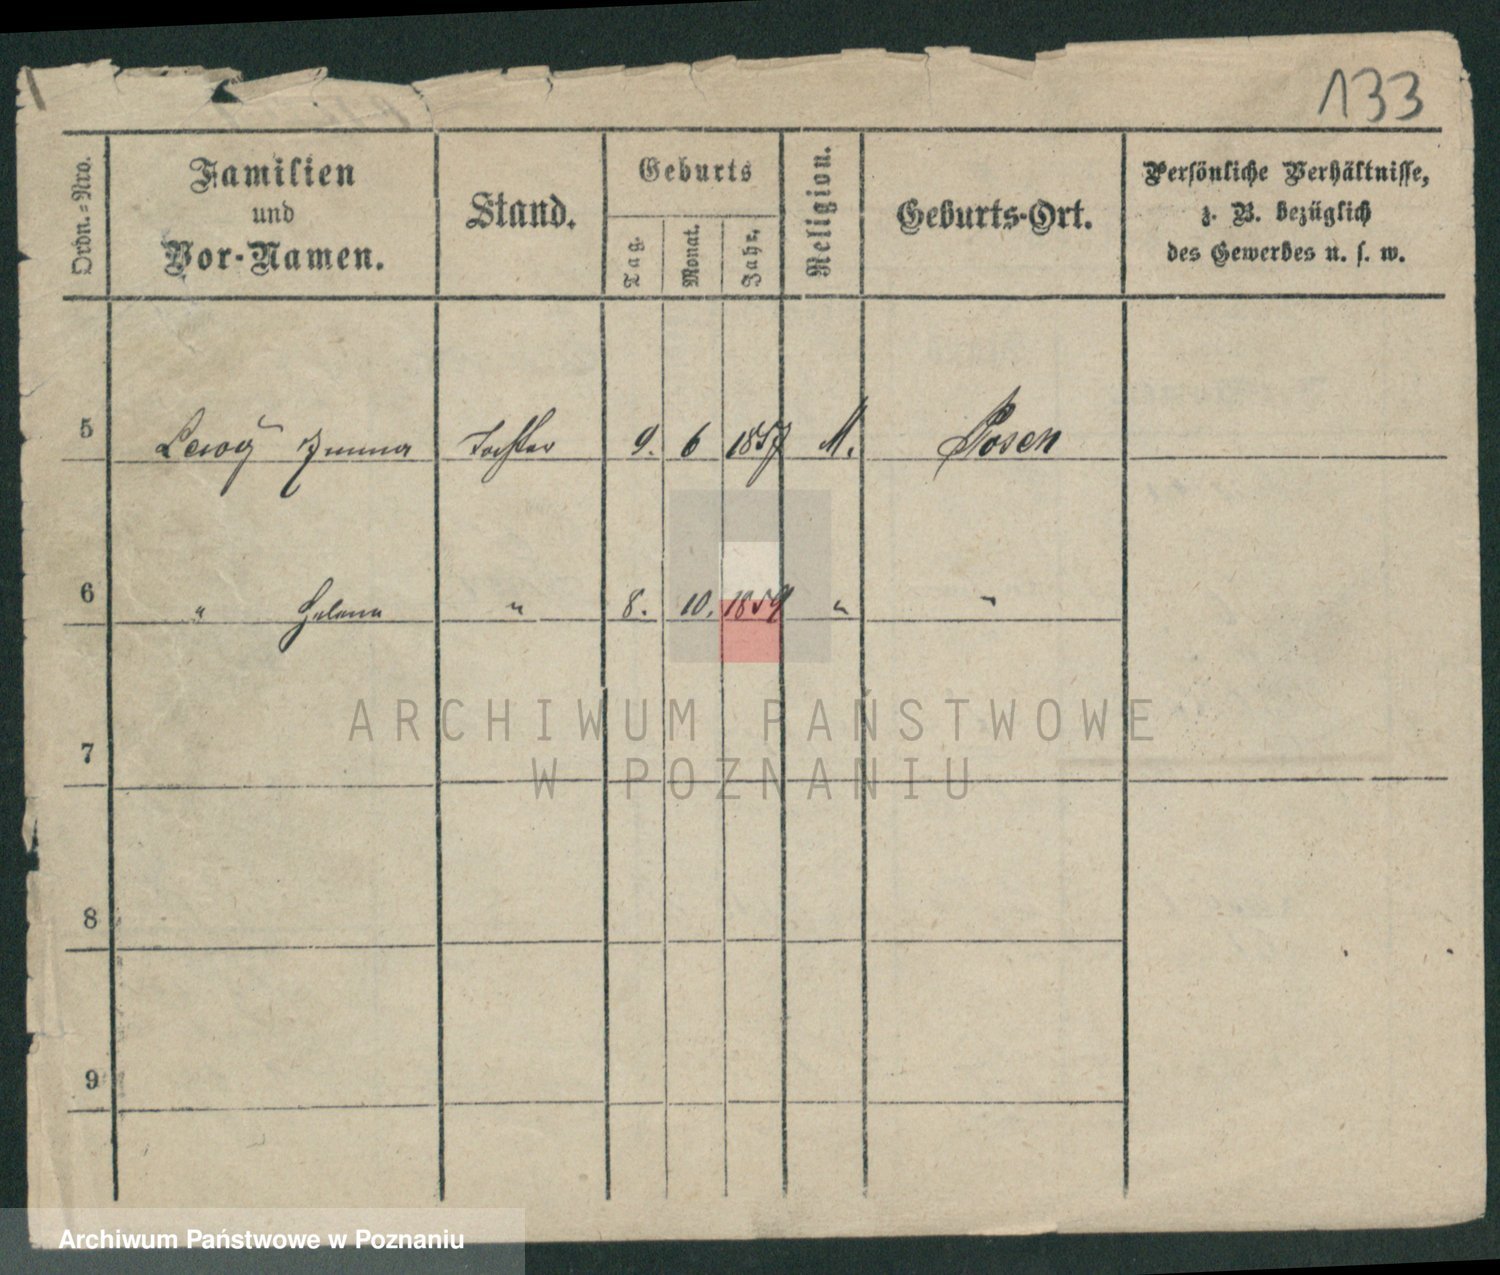 133
Ordn.=Nro. Familien und Vor-Namen. Stand. Geburts Tag. Monat. Jahr. Religion. Geburts-Ort. Persönliche Verhältnisse, z. B. bezüglich des Gewerbes u. s. w.
5 Tochter 9. 6 1857 M. Posen
6 " Helena " 8. 10. 1859 " "
7
8
9
ARCHIWUM PAŃSTWOWE
W POZNANIU
Archiwum Państwowe w Poznaniu